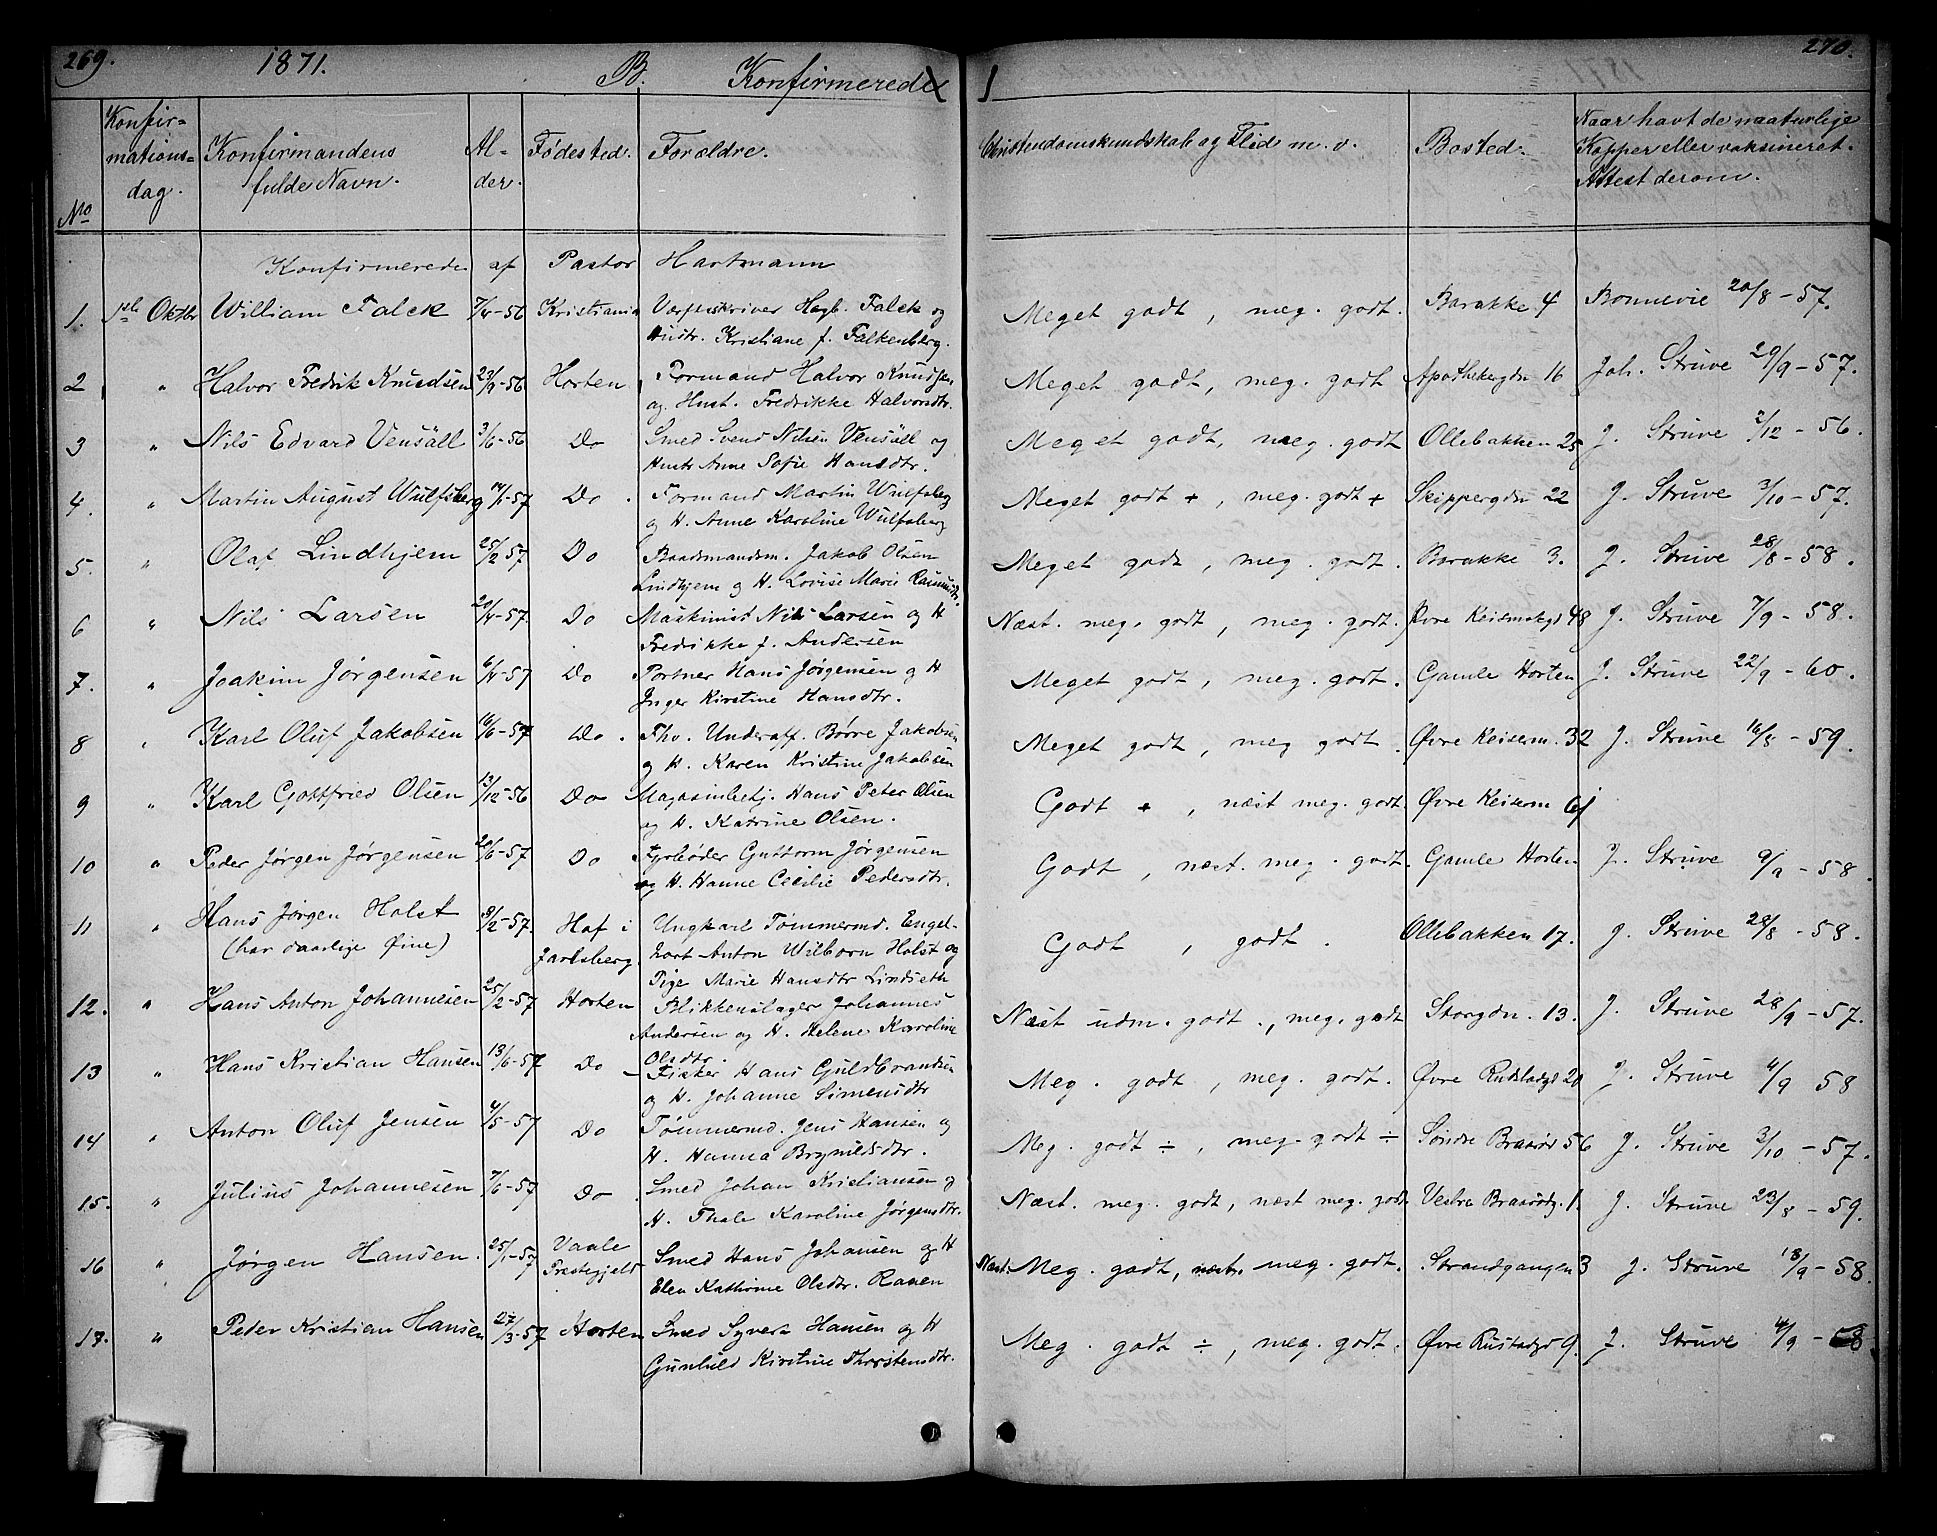 269. 1871. B. Konfirmerede 270.
No
Konfirmationsdag.
Konfirmandens fulde Navn.
Alder.
Fødested.
Forældre.
Christendomskundskab og Flid m. v.
Bosted.
Naar havt de naturlige Kopper eller vaksineret. Attest derom.
Konfirmerede af Pastor Hartmann
1. 1ste Oktbr William Falck 7/4-56 Kristiania Værftsskriver Hagb. Falck og Meget godt, meg. godt. Barakke 4 Bonnevie 20/8-57.
Hustr. Kristiane f. Falkenberg.
2 " Halvor Fredrik Knudsen 23/9-56 Horten Formand Halvor Knudsen Meget godt, meg. godt Apothekergdn 16 Joh. Struve 29/9-57.
og Hust. Fredrikke Halvorsdtr.
3 " Nils Edvard Vensäll 3/6-56 Do Smed Svend Nilsen Vensäll og Meget godt, meg. godt Ollebakken 25 J. Struve 2/12-56.
Hustr Anne Sofie Hansdtr.
4. " Martin August Wulfsberg 14/1-57 Do. Formand Martin Wulfsberg Meget godt +, meg. godt + Skippergdn 22 J. Struve 3/10-57.
og H. Anne Karoline Wulfsberg
5. " Olaf Lindhjem 25/2-57 Do Baadsmandsm. Jakob Olsen Meget godt, meg. godt. Barakke 3. J. Struve 28/8-58.
Lindhjem og H. Lovise Marie Rasmusdtr.
6 " Nils Larsen 20/4-57. Do Maskinist Nils Larsen og H Næst. meg. godt, meg. godt. Øvre Keismskgd 48 J. Struve 7/9-58.
Fredrikke f. Andersen
7. " Joakim Jørgensen 6/4-57 Do Portner Hans Jørgensen og H Meget godt, meg. godt. Gamle Horten J. Struve 22/9-60.
Inger Kirstine Hansdtr.
8 " Karl Oluf Jakobsen 16/6-57 Do. Fhv. Underoff. Børre Jakobsen Meget godt, meg godt. Øvre Keiserm. 32 J. Struve 16/8-59.
og H. Karen Kristine Jakobsen
9 " Karl Gottfried Olsen 13/12-56 Do Magasinbetj. Hans Peter Olsen Godt +, næst meg. godt. Øvre Keiserm 61
og H. Katrine Olsen.
10 " Peder Jørgen Jørgensen 20/6-57 Do Fyrbøder Guttorm Jørgensen Godt, næst. meg. godt. Gamle Horten J. Struve 9/9-58.
og H. Hanne Cecilie Pedersdtr.
11 " Hans Jørgen Holst 8/2-57. Hof i Ungkarl Tømmermd. Engel- Godt, godt. Ollebakken 17. J. Struve 28/8-58.
(har daarlige Øine) Jarlsberg. hart Anton Wilborn Holst og
Pige Marie Hansdtr Lindseth
12. " Hans Anton Johannesen 25/2-57 Horten Blikkenslager Johannes Næst udm. godt., meg. godt Storgdn. 13. J. Struve 28/9-57.
Andersen og H. Helene Karoline
Olsdtr.
13 " Hans Kristian Hansen 13/6-57 Do Fisker Hans Guldbrandsen Meg. godt, meg. godt. Øvre Rustadgd 20 J. Struve 4/9 58
og H. Johanne Simensdtr
14 " Anton Oluf Jensen 4/5-57 Do Tømmermd. Jens Hansen og Meg. godt ÷, meg. godt ÷ Søndre Braarød 56 J. Struve 3/10-57.
H. Hanna Brynildsdtr.
15. " Julius Johannesen 7/6-57 Do. Smed Johan Kristiansen og Næst. meg. godt, næst meg. godt Vestre Braarødg. 1. J. Struve 23/8-59.
H. Thale Karoline Jørgensdtr.
16 " Jørgen Hansen. 25/1-57 Vaale Præstegjeld Smed Hans Johansen og H Næst. Meg. godt, næst. meg. godt. Strandgangen 3 J. Struve 18/9-58.
Elen Kathrine Olsdtr. Raaen
17. " Peder Kristian Hansen 27/3-57 Horten Smed Syvert Hansen og H Meg. godt ÷, meg. godt. Øvre Rustadgd 9. J. Struve 4/9-58
Gunhild Kirstine Thorstensdtr.